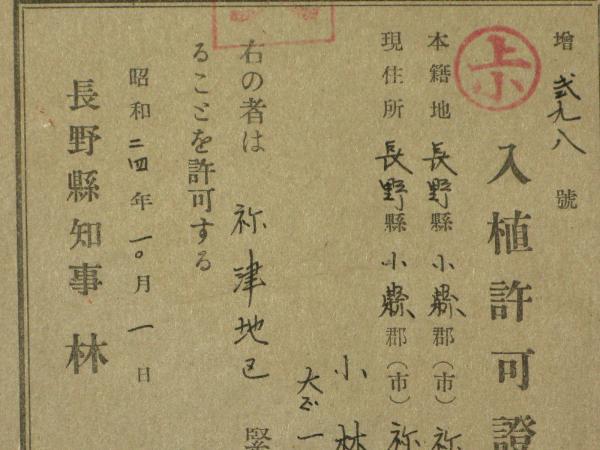 增 弐九八 號
上小
入植許可證
本籍地 長野縣 小縣 郡(市) 祢
現住所 長野縣 小縣 郡(市) 祢
小林
大正 一
右の者は 祢津地区 緊
ることを許可する
昭和二四年一〇月一日
長野縣知事 林